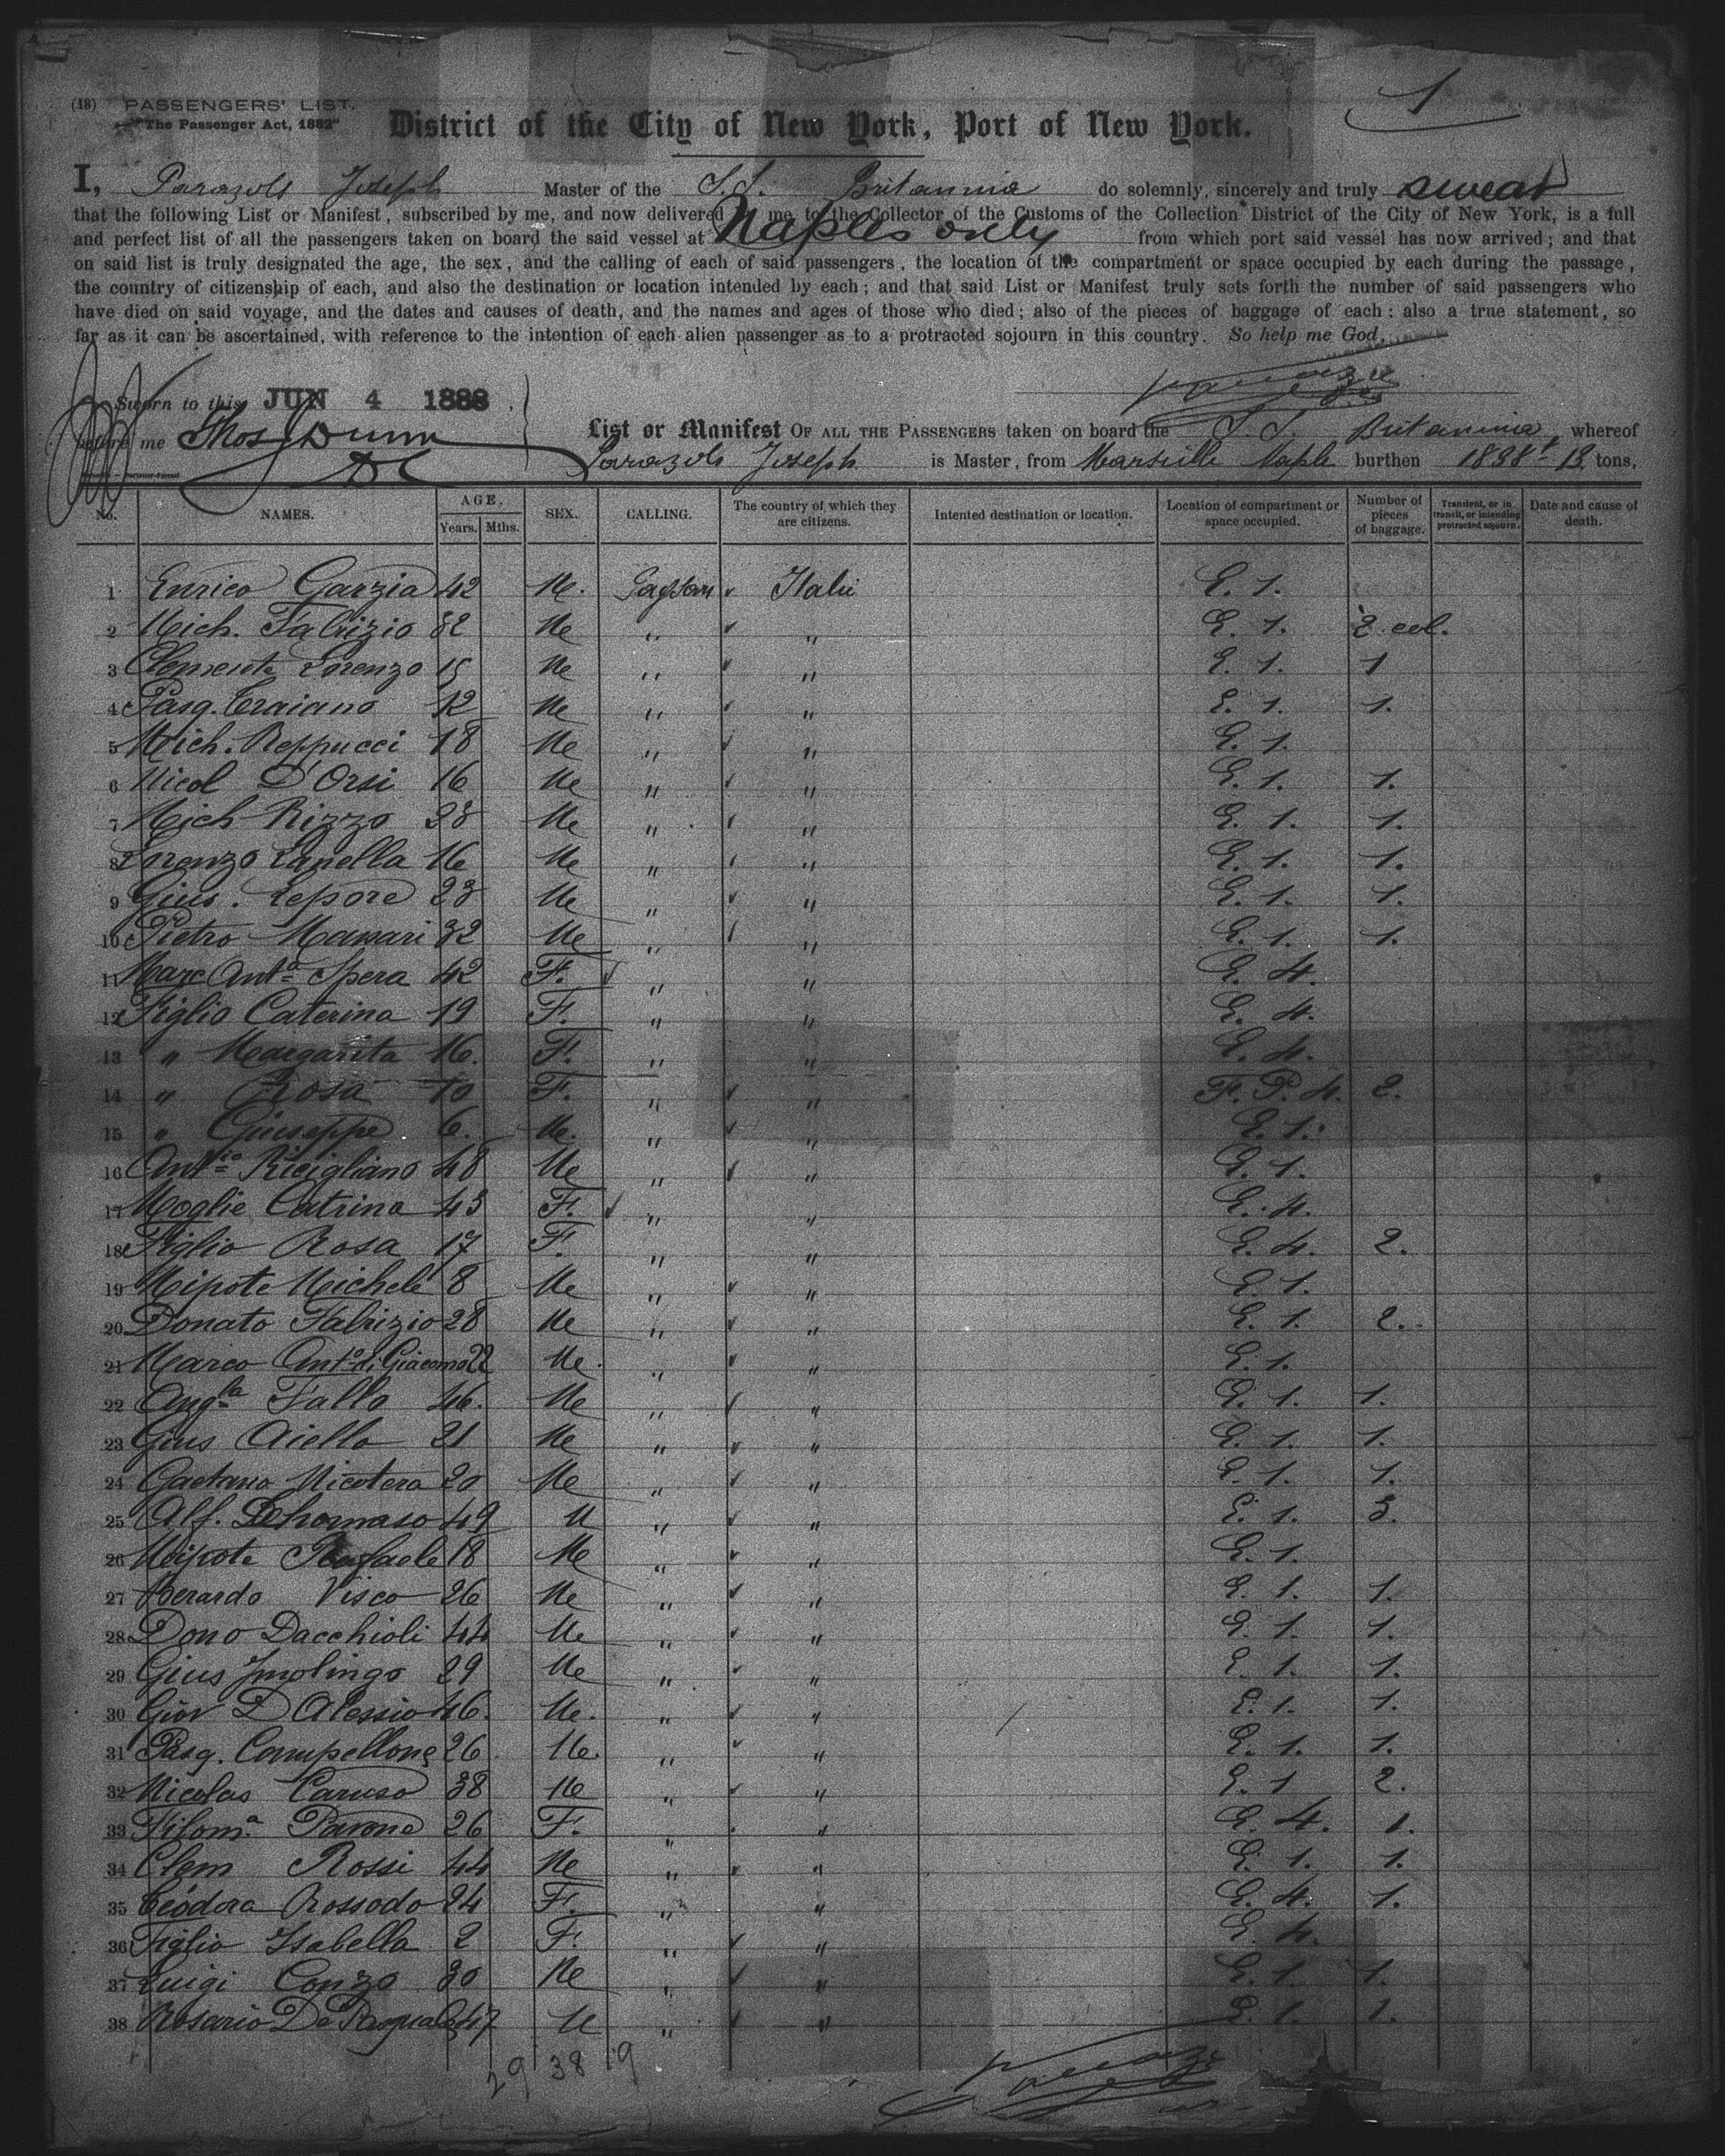 (18) PASSENGERS' LIST.
"The Passenger Act, 1882"
1
District of the City of New York, Port of New York.
I, Parazols Joseph Master of the S.S. Britannia do solemnly, sincerely and truly swear
that the following List or Manifest, subscribed by me, and now delivered by me to the Collector of the Customs of the Collection District of the City of New York, is a full
and perfect list of all the passengers taken on board the said vessel at Naples only from which port said vessel has now arrived; and that
on said list is truly designated the age, the sex, and the calling of each of said passengers, the location of the compartment or space occupied by each during the passage,
the country of citizenship of each, and also the destination or location intended by each; and that said List or Manifest truly sets forth the number of said passengers who
have died on said voyage, and the dates and causes of death, and the names and ages of those who died; also of the pieces of baggage of each: also a true statement, so
far as it can be ascertained, with reference to the intention of each alien passenger as to a protracted sojourn in this country. So help me God.
Sworn to this JUN 4 1888
before me Thos J Dunn
DC
List or Manifest OF ALL THE PASSENGERS taken on board the S.S. Britannia, whereof
Parazols Joseph is Master, from Marseille Naple burthen 1898t 13 tons,
No. NAMES. AGE. Years. Mths. SEX. CALLING. The country of which they are citizens. Intented destination or location. Location of compartment or space occupied. Number of pieces of baggage. Transient, or in transit, or intending protracted sojourn. Date and cause of death.
1 Enrico Garzia 42 Me. Italie E. 1.
2 Mich. Fabrizio 32 Me " " E. 1. 2 col.
3 Clemente Lorenzo 15 Me " " E. 1. 1
4 Pasq. Traiano 12 Me " " E. 1. 1.
5 Mich. Reppucci 18 Me " " E. 1.
6 Nicol D'Orsi 16 Me " " E. 1. 1.
7 Mich Rizzo 28 Me " " E. 1. 1.
8 Lorenzo Zanella 16 Me " " E. 1. 1.
9 Gius. Lepore 23 Me " " E. 1. 1.
10 Pietro Massari 32 Me " " E. 1. 1.
11 Marc Anta Spera 42 F. " " E. 4.
12 Figlio Caterina 19 F. " " E. 4.
13 " Margarita 16. F. " " E. 4.
14 " Rosa 10 F. " " F. P. 4. 2.
15 " Giuseppe 6. Me. " " E. 1.
16 Antio Ricigliano 48 Me " " E. 1.
17 Moglie Catrina 43 F. " " E. 4.
18 Figlio Rosa 17 F. " " E. 4. 2.
19 Nipote Michele 8 Me " " E. 1.
20 Donato Fabrizio 28 Me " " E. 1. 2.
21 Marco Anto di Giacomo 22 Me. " " E. 1.
22 Angla Fallo 46. Me " " E. 1. 1.
23 Gius Aiello 21 Me " " E. 1. 1.
24 Gaetano Nicotera 20 Me " " E. 1. 1.
25 Alf. Dethomaso 49 M " " E. 1. 3.
26 Nipote Rafaele 18 Me " " E. 1.
27 Berardo Visco 26 Me " " E. 1. 1.
28 Dono Dacchioli 44 Me " " E. 1. 1.
29 Gius Imolingo 29 Me " " E. 1. 1.
30 Giov D Alessio 46. Me. " " E. 1. 1.
31 Pasq. Campellone 26 Me. " " E. 1. 1.
32 Nicolas Caruso 38 Me " " E. 1 2.
33 Filoma Pavone 26 F. " " E. 4. 1.
34 Clem Rossi 44 Me " " E. 1. 1.
35 Teodora Rossodo 24 F. " " E. 4. 1.
36 Figlio Isabella 2 F. " " E. 4.
37 Luigi Conzo 30 Me " " E. 1. 1.
38 Rosario De Pasquale 47 M " " E. 1. 1.
29 38 9